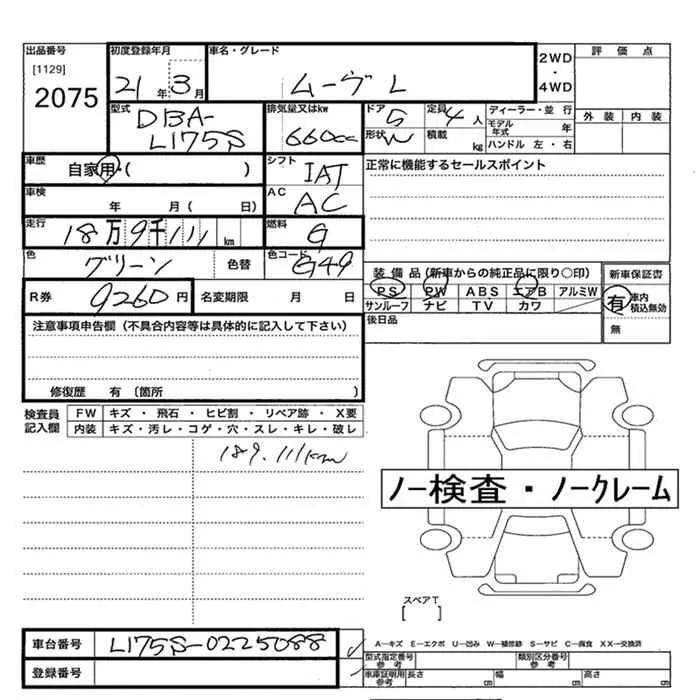 出品番号 初度登録年月 車名・グレード 2WD・4WD 評価点
[1129]
2075 21年 3月 ムーヴ L
型式 排気量又はkw ドア 5 定員 4人 ディーラー・並行 外装 内装
DBA-L175S 660cc 形状 W 積載 kg モデル年式 年
ハンドル 左・右
車歴 自家用・( ) シフト IAT 正常に機能するセールスポイント
車検 年 月( 日) AC AC
走行 18万9千111km 燃料 G
色 グリーン 色替 色コード G49 装備品(新車からの純正品に限り○印) 新車保証書
R券 9260円 名変期限 月 日 PS PW ABS エアB アルミW 有 車内積込無効
サンルーフ ナビ TV カワ 無
注意事項申告欄(不具合内容等は具体的に記入して下さい) 後日品
修復歴 有〔箇所 〕
検査員記入欄 FW キズ・飛石・ヒビ割・リペア跡・X要
内装 キズ・汚レ・コゲ・穴・スレ・キレ・破レ
189.111km
ノー検査・ノークレーム
スペアT
[ ]
車台番号 L175S-0225088 A―キズ E―エクボ U―凹み W―補修跡 S―サビ C―腐食 XX―交換済
型式指定番号 参考 類別区分番号 参考
登録番号 車庫証明用 参考 長さ cm 幅 cm 高さ cm